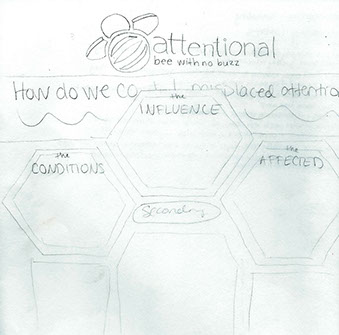 attentional
bee with no buzz
How do we misplaced
the
INFLUENCE
the
CONDITIONS
the
AFFECTED
Secondary